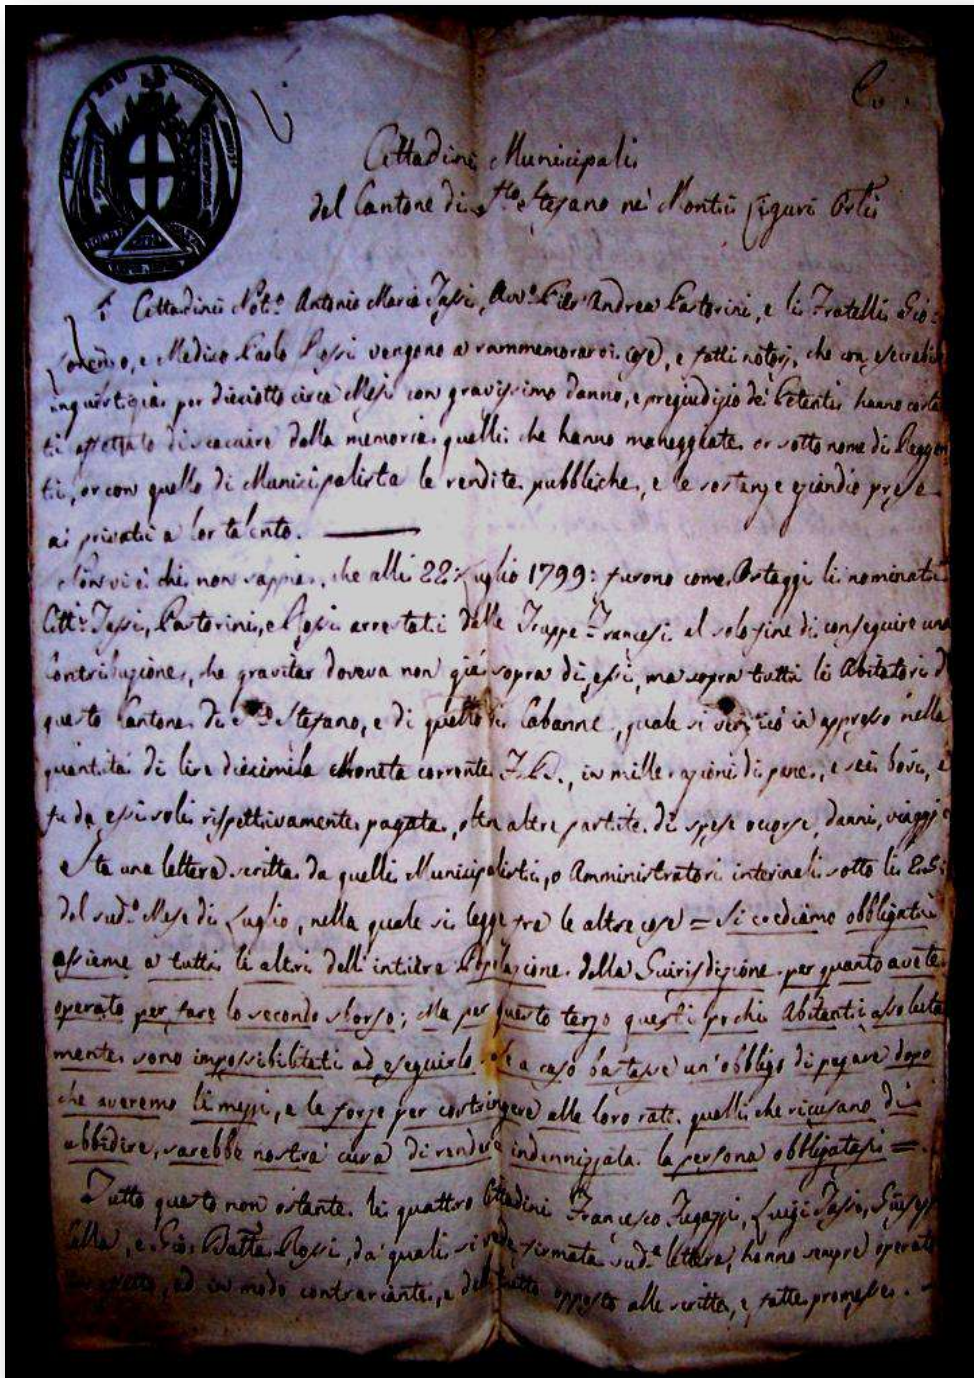 Cittadini Municipali
del Cantone di Sto Stefano ne' Monti Liguri Orli
Cittadini Not.o Antonio Maria Tassi, Avv.o Pier Andrea Pastorini, e li Fratelli Gio:
Lorenzo, e Medico Paolo Rossi vengono a rammemorarvi cose, e fatti notorj, che con esecrabile
ingiustizia per dieciotto circa Mesi con gravissimo danno, e pregiudizio de' Petenti hanno costa
ti affettato di scacciare dalla memoria quelli che hanno maneggiate or sotto nome di Reggen
ti, or con quello di Municipalista le rendite pubbliche, e le sostanze eziandio prese
ai privati a lor talento.
Non vi è chi non sappia, che alli 22: Luglio 1799: furono come Ostaggi li nominati
Citt.i Tassi, Pastorini, e Rossi arrestati dalle Truppe Francesi al solo fine di conseguire una
Contribuzione, che gravitar doveva non già sopra di essi, ma sopra tutti li Abitatori d
questo Cantone di Sto Stefano, e di quello di Cabanne, quale si verificò in appresso nella
quantità di lire diecimila Moneta corrente F.B., in mille razioni di pane, e sei bovi, e
fu da essi soli rispettivamente pagata, oltre altre partite di spese occorse, danni, viaggi e
Sta una lettera scritta da quelli Municipalisti, o Amministratori interinali sotto li 25:
del sud.o Mese di Luglio, nella quale si legge fra le altre cose = Si crediamo obbligati
assieme a tutti li altri dell'intiera Popolazione della Guirisdizione per quanto avete
operato per fare lo secondo sborso; Ma per questo terzo questi pochi Abitenti assoluta
mente sono impossibilitati ad eseguirlo. Se a caso bastasse un'obbligo di pagare dopo
che averemo li mezzi, e le forze per costringere alle loro rati quelli che ricusano di
abbidire, sarebbe nostra cura di rendere indennizzata la persona obbligatasi =.
Tutto questo non ostante li quattro Cittadini Francesco Fugazzi, Luigi Tasso, Giusepp
Cella, e Gio: Batta Rossi, da' quali si vede firmata sud.a lettera, hanno sempre operato
ed in modo contrariante, e del tutto opposto alle scritte, e fatte promesse.